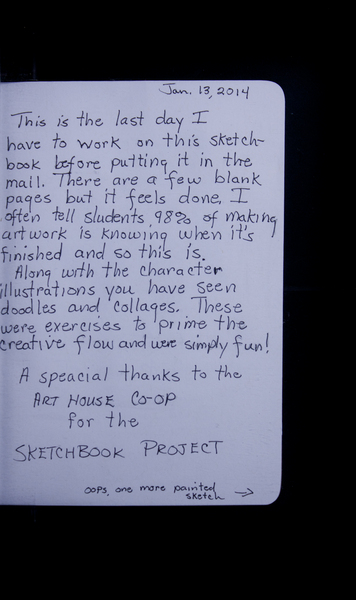 Jan. 13, 2014
This is the last day I
have to work on this sketch-
book before putting it in the
mail. There are a few blank
pages but it feels done. I
often tell students, 98% of making
artwork is knowing when it's
finished and so this is.
Along with the character
illustrations you have seen
doodles and collages. These
were exercises to prime the
creative flow and were simply fun!
A speacial thanks to the
ART HOUSE CO-OP
for the
SKETCHBOOK PROJECT
oops, one more painted
sketch →